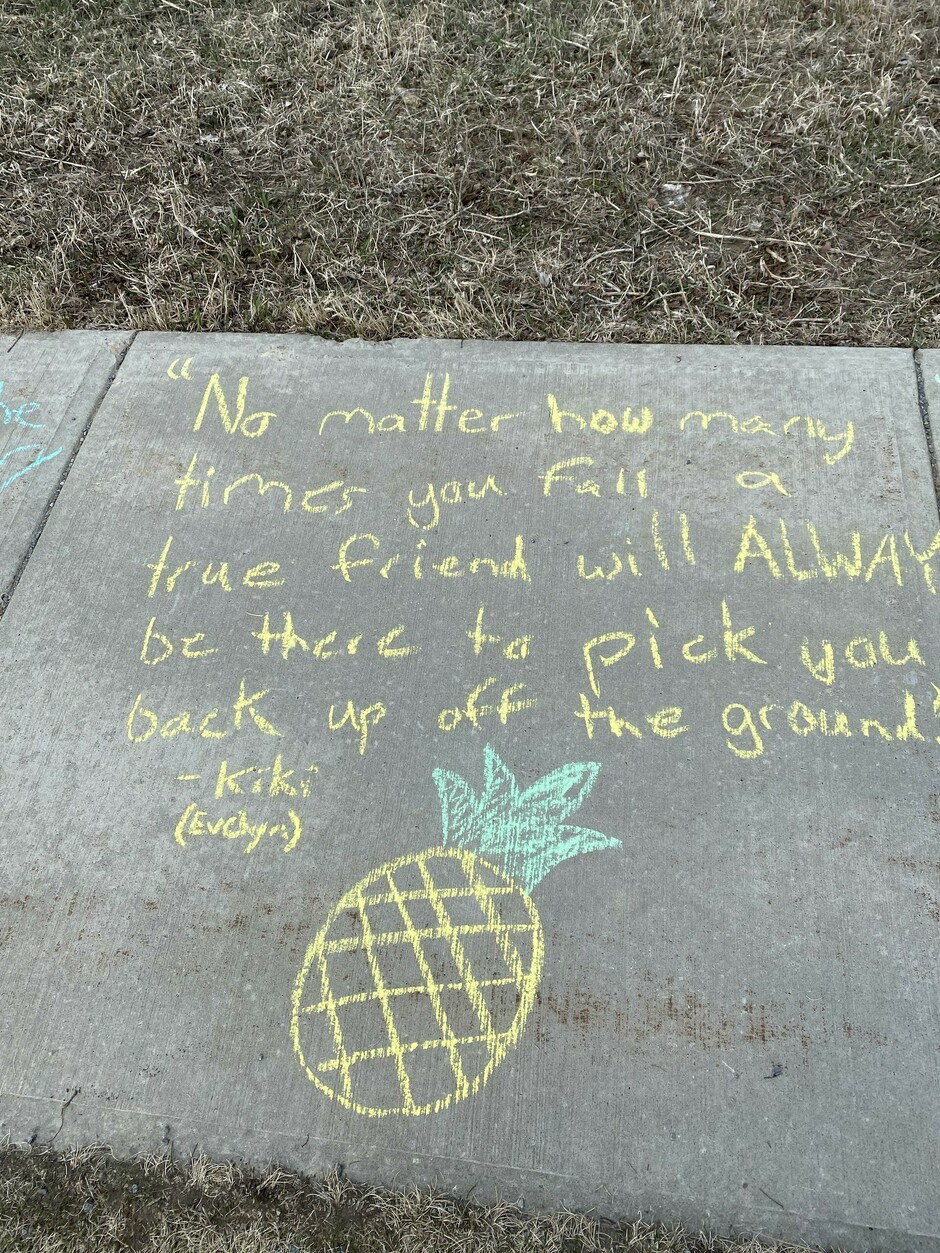 "No matter how many
times you fall a
true friend will ALWAY
be there to pick you
back up off the ground"
-Kiki
(Evelyn)